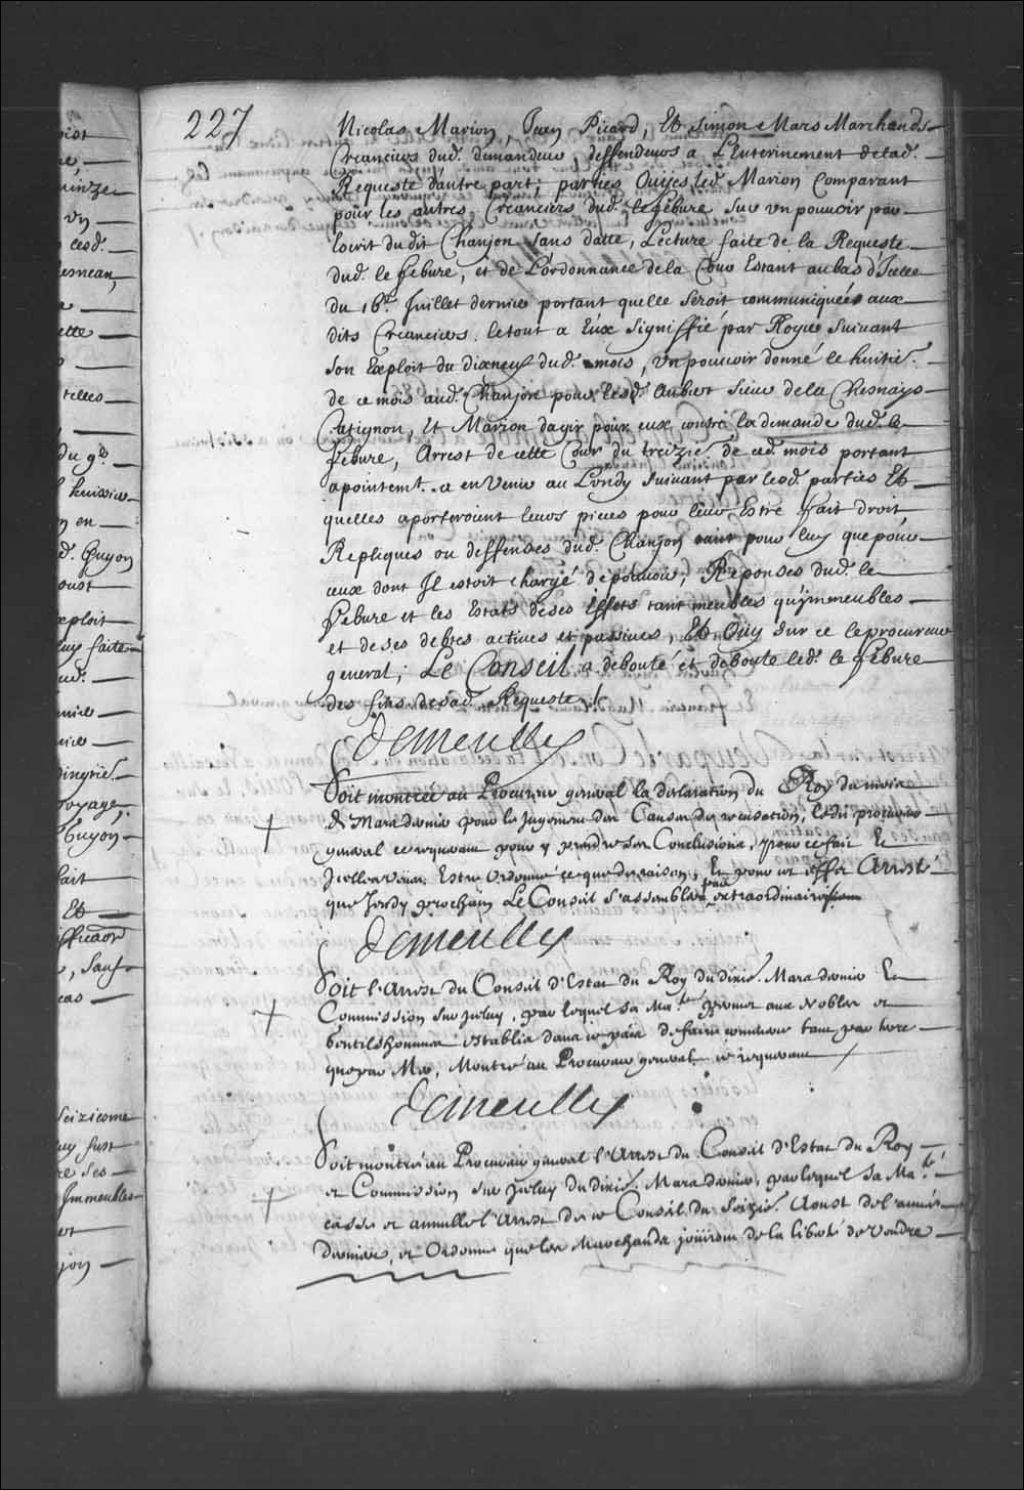 227
Nicolas Marion, Jean Picard, Et Simon Mars Marchands
Creanciers dud. demandeur, deffendeurs a L'Enterinement de lad.
Requeste dautre part; parties Ouijes led. Marion Comparant
pour les autres Creanciers dud. le febure sur un pouvoir par
Escrit du dit Chanjon sans datte, Lecture faite de la Requeste
dud. le febure, et de L'ordonnance de la Cour Estant au bas d'Icelle
du 16e. Juillet dernier portant quelle seroit communiquées aux
dits Creanciers. le tout a Eux signiffié par Roger suivant
son Exploit du dixneuf dud. mois, Un pouvoir donné le huitie.
de ce mois aud. Chanjon pour lesd. Aubert sieur de la Chesnaye
Catignon, Et Marion dagir pour eux contre la demande dud. le
febure, Arrest de cette Cour du treizie. de ced. mois portant
apointemt. a en Venir au Lundy suivant par lesd. parties Et
quelles aporteroient leurs pieces pour leur Estre fait droit,
Repliques ou deffenses dud. Chanjon tant pour luy que pour
ceux dont Il estoit chargé de pouvoir, Reponses dud. le
febure et les Estats de ses Effets tant meubles qu'immeubles
et de ses debtes actives et passives, Et Ouy sur ce le procureur
general; Le Conseil a debouté et deboute led. le febure
des fins de sad. Requeste /.
Demeulle
Soit montrée au Procureur general la declaration du Roy du mois
de Mars dernier pour le Jugement des Causes de recusation, ledit procureur
general ce requerant pour y prendre ses Conclusions, pour ce fait Et
Icelles veues Estre Ordonné ce que de raison, Et pour cet effet Arresté
que Jeudy prochain Le Conseil s'assemblera extraordinairement
Demeulle
Soit l'Arrest du Conseil d'Estat du Roy du dixie. Mars dernier Et
Commission sur Iceluy, par lequel sa Mate. permet aux Nobles et
Gentilshommes establis dans ce pais de faire commerce tant par terre
que par Mer, Montré au Procureur general ce requerant /
Demeulle
Soit montré au Procureur general l'Arrest du Conseil d'Estat du Roy
et Commission sur Iceluy du dixie. Mars dernier, par lequel sa Mate.
casse et annulle l'Arrest de ce Conseil du seizie. Aoust de l'année
derniere, et Ordonne que les Marchands jouiront de la liberté de vendre